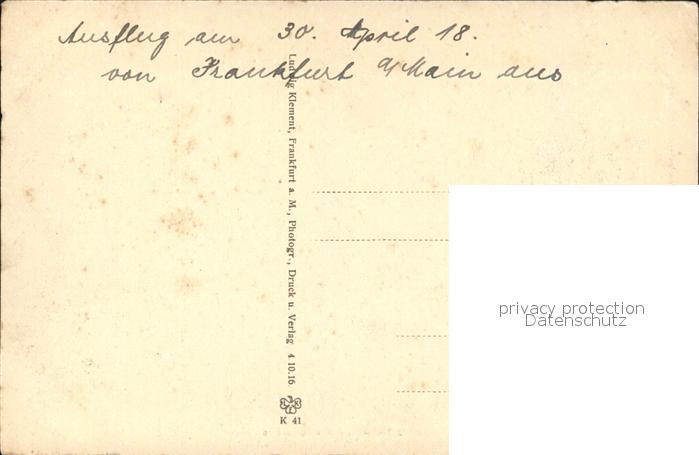 Ausflug am 30. April 18.
von Frankfurt a/Main aus
Ludwig Klement, Frankfurt a. M., Photogr., Druck u. Verlag 4 10.16
K 41
privacy protection
Datenschutz